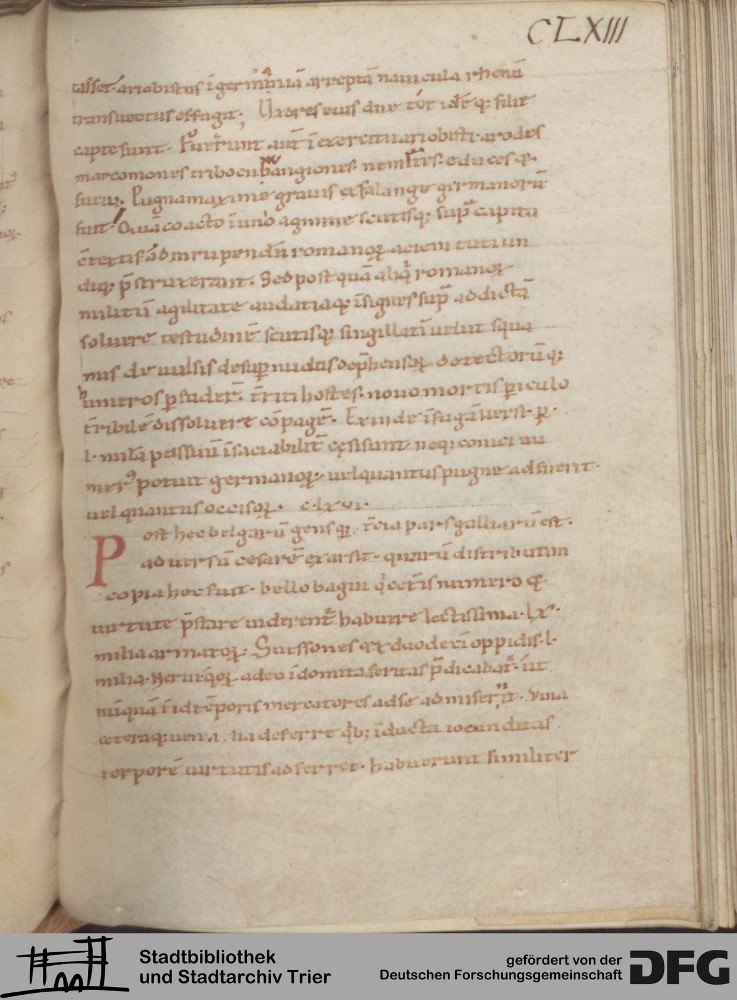 CLXIII
tasset. ariobistus ī germaniā arreptā nauicula rhenū
transuectus effugit; Uxores eius due tot idē q; filie
capte sunt. Fuerunt aut̄ ī exercitu ariobisti. arodes
marcomones tribocu uuangiones. nemetes. educes q;
sueui. Pugna maxime grauis ex falange germanorū
fuit. Quā coacto ī uno agmine scutisq; sup̄ capita
c̄textis ad inrupendā romanoꝝ aciem tuti un
diq; p̄struxerant. Sed post quā aliq̇ romanoꝝ
militū agilitate audatiaq; īsignes sup̄ adductā
soluere testudinē scutisq; singillatī uelut squa
mis de uulsis desuꝑ nudatis dep̄hensoꝝ detectorūq;
humeros ꝑfoder̄. t̄riti hostes. nouo mortis ꝑiculo
t̄ribilē dissoluere cōpagē. Exinde ī fugā uersi. ꝑ.
l. milia passuū īsaciabilit̄ cęsi sunt. neq; conici nu
merꝰ potuit germanoꝝ. uel quantus pugne adfuerit.
uel quantus occisoꝝ. clxvi.
Post hec belgarū gens quę t̄cia pars galliarū est.
aduersū cesarē exarsit. quarū distributim
copia hec fuit. bello bagui q̇ cet̄is numero &
uirtute p̄stare uiderent̄ habuere lectissima. lx.
milia armatoꝝ. Suessones ex duodecī oppidis. l.
milia. Neruioꝝ adeo īdomita feritas p̄dicabat̄. ut
nūquā ī id tēporis mercatores ad se admiserīt. uina
ceteraq; uena lia deferre q̇b; īducta iocunditas
torporē uirtutis adferret. habuerunt similiter
Stadtbibliothek
und Stadtarchiv Trier
gefördert von der
Deutschen Forschungsgemeinschaft
DFG